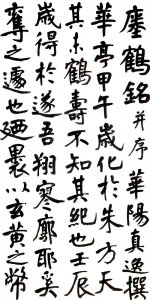 瘞鶴銘并序 華陽真逸撰
鶴壽不知其紀也壬辰
歲得於華亭甲午歲化於朱方天
其未遂吾翔寥廓耶奚
奪之遽也廼裹以玄黃之幣